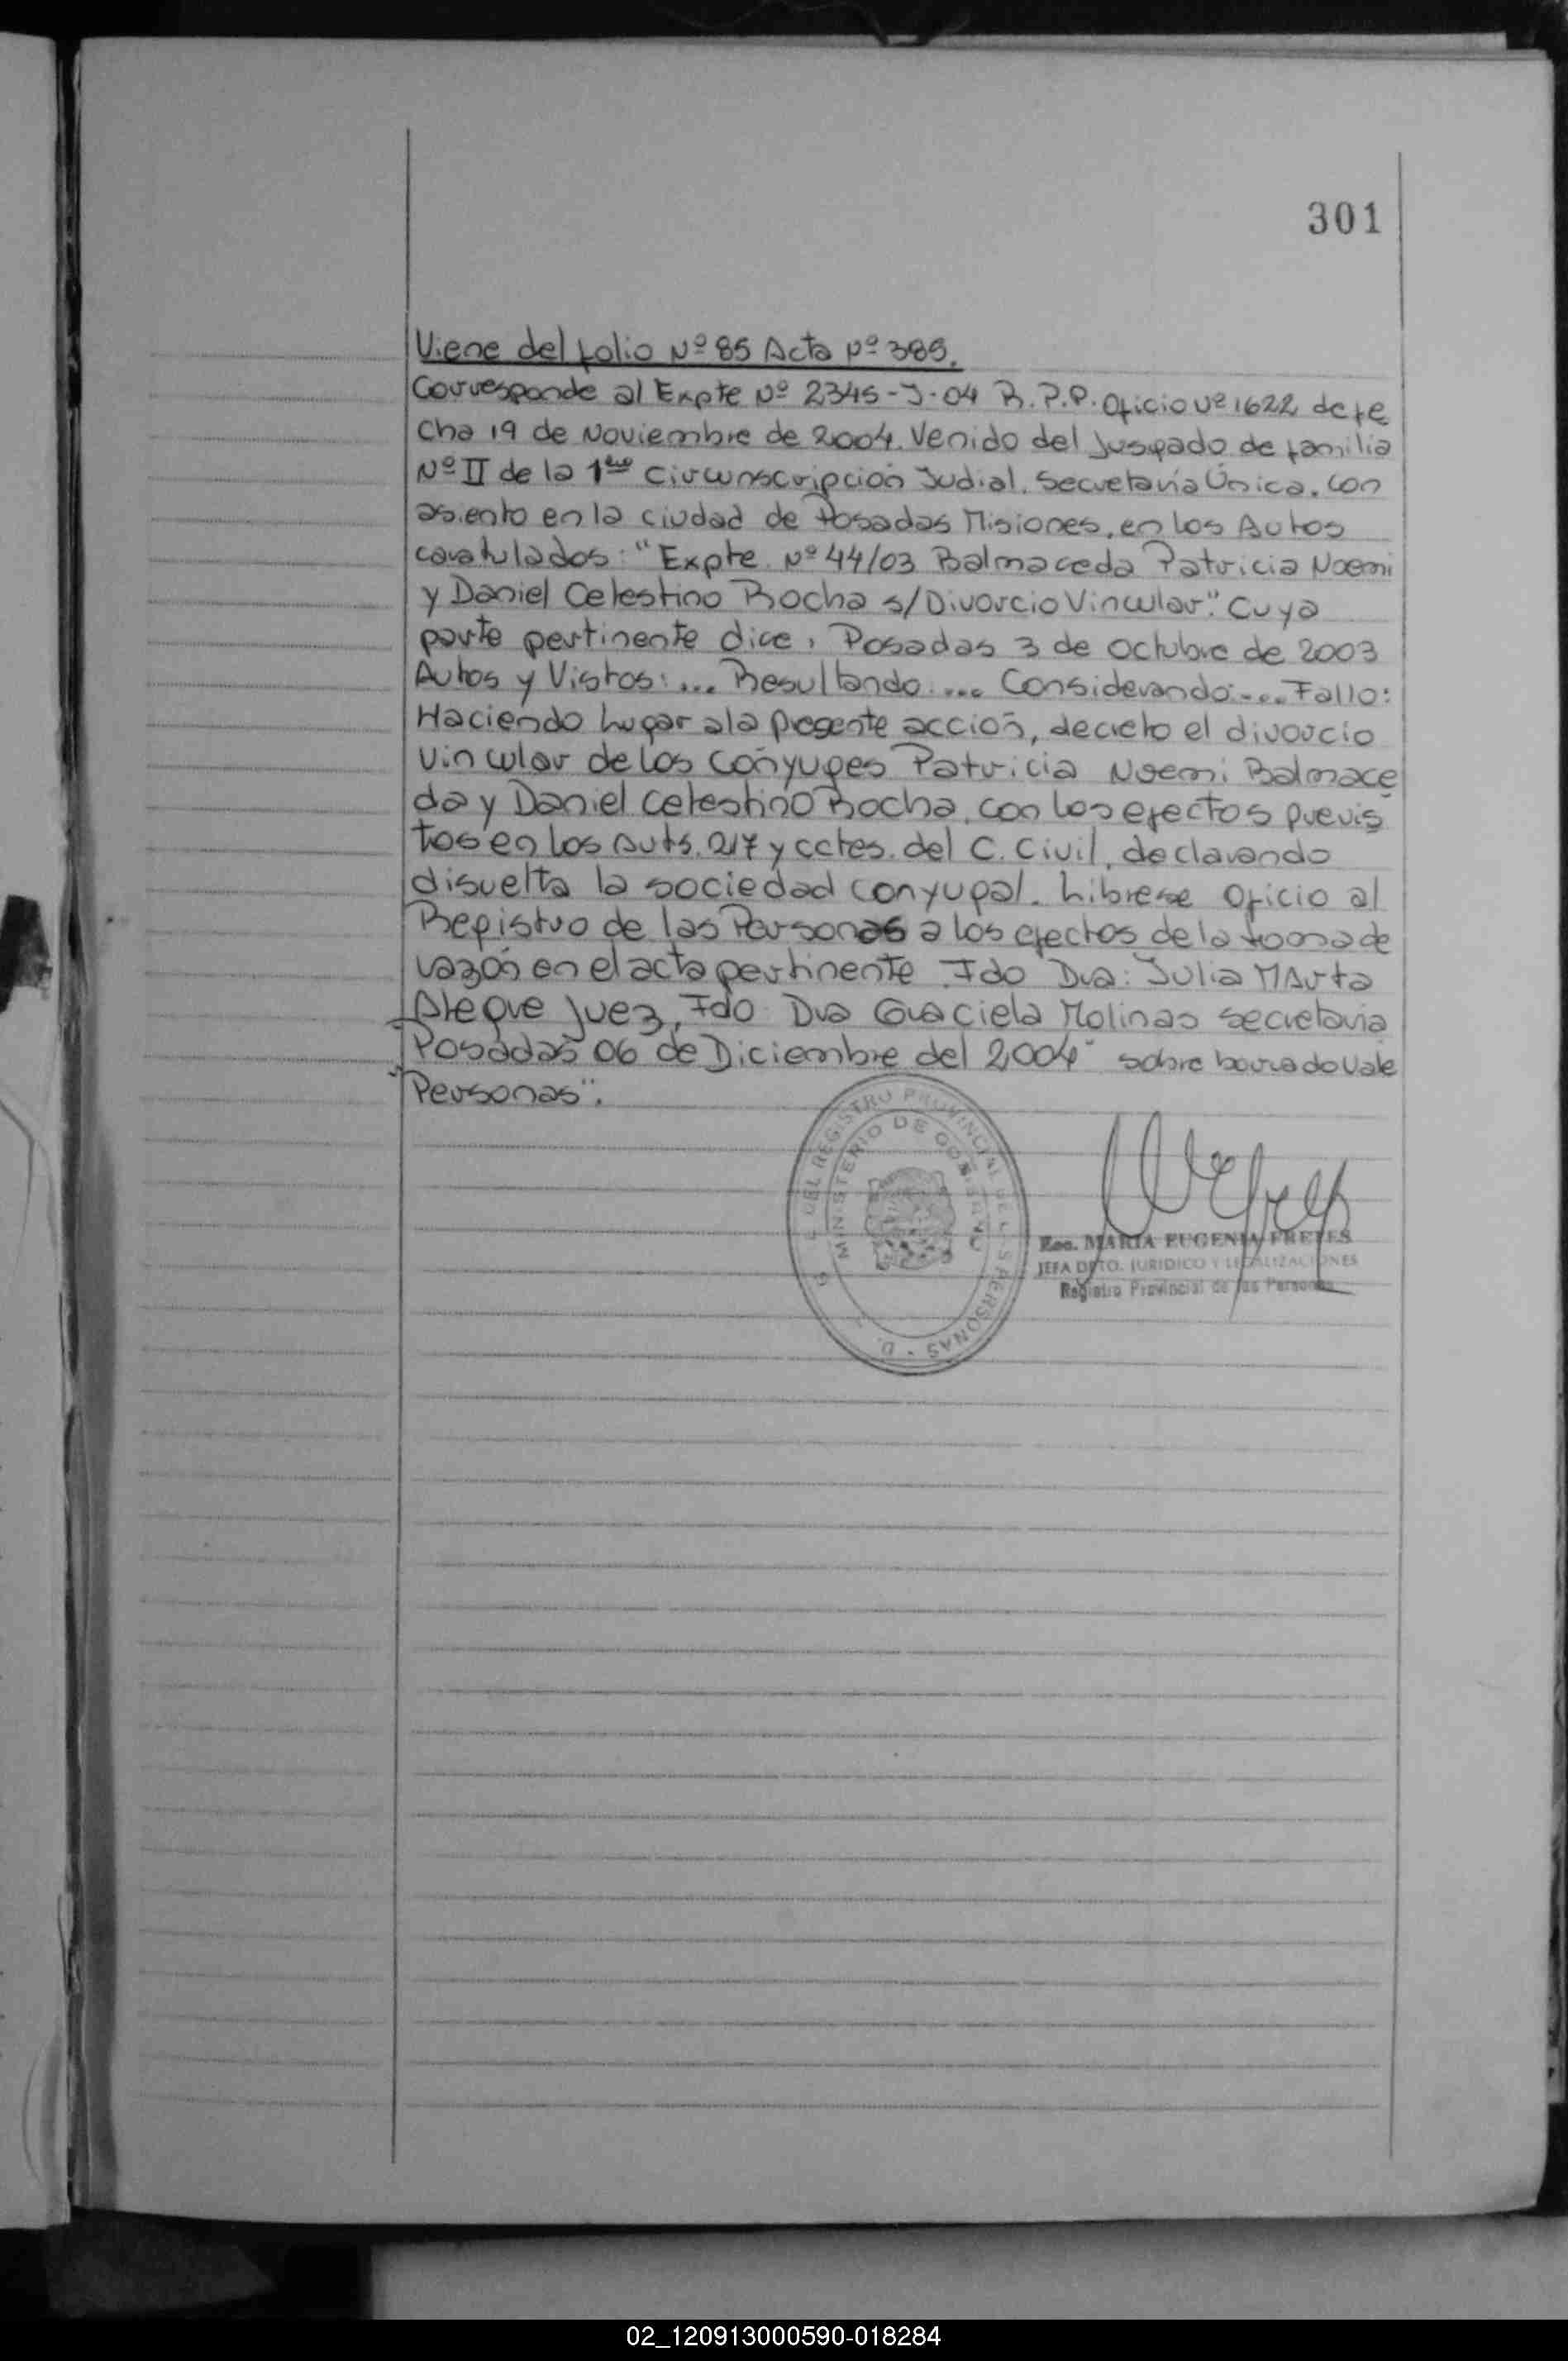 301
Viene del folio Nº 85 Acta Nº 389.
Corresponde al Expte Nº 2345-J-04 R.P.P. Oficio Nº 1622 de fe
cha 19 de Noviembre de 2004. Venido del Jusgado de familia
Nº II de la 1era Circunscripción Judial. Secretaría Única. con
asiento en la ciudad de Posadas Misiones, en los Autos
caratulados: "Expte Nº 44/03 Balmaceda Patricia Noemi
y Daniel Celestino Rocha s/Divorcio Vincular". Cuya
parte pertinente dice, Posadas 3 de Octubre de 2003
Autos y Vistos: ... Resultando .... Considerando: .... Fallo:
Haciendo lugar a la presente acción, decreto el divorcio
Vincular de los cónyuges Patricia Noemi Balmace
da y Daniel Celestino Rocha, con los efectos previs
tos en los Arts. 217 y cctes. del C. Civil, declarando
disuelta la sociedad conyugal. Librese Oficio al
Registro de las Personas a los efectos de la toma de
razón en el acta pertinente. Fdo Dra: Julia Marta
Alegre Juez, Fdo Dra Graciela Molinas secretaria
Posadas 06 de Diciembre del 2004" sobre borrado Vale
"Personas".
REGISTRO PROVINCIAL DE L S PERSONAS - D.
MINISTERIO DE GOBIERNO
Esc. MARIA EUGENIA FRETES
JEFA DPTO. JURIDICO Y LEGALIZACIONES
Registro Provincial de las Personas
02_120913000590-018284